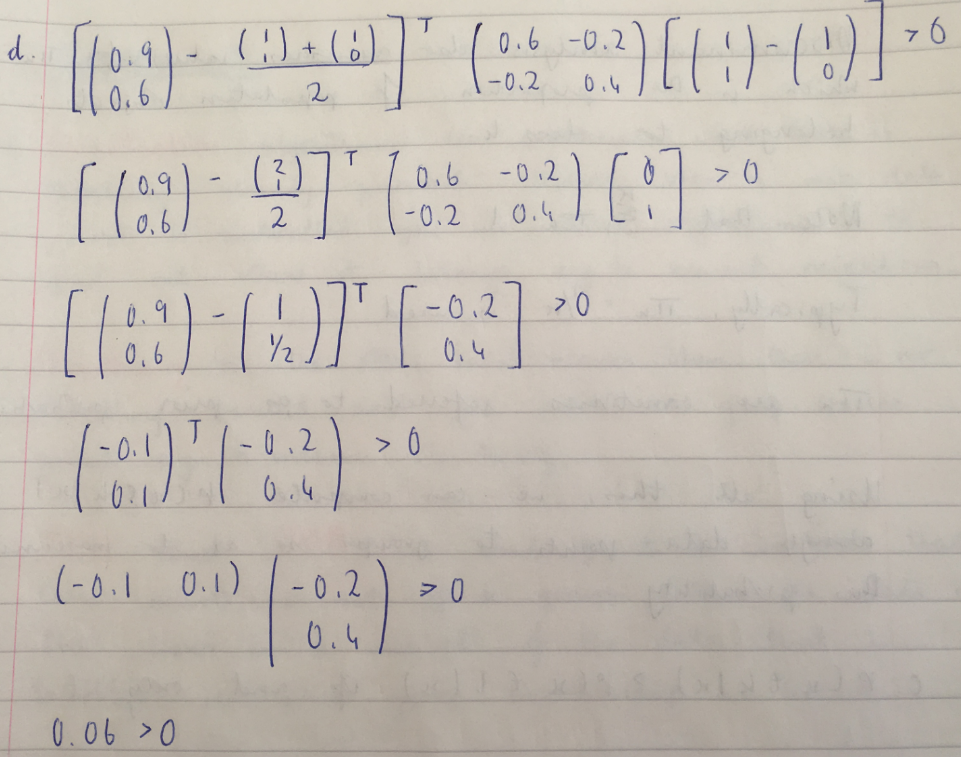 d. [(0.9 0.6) - ((1 1) + (1 0))/2]ᵀ (0.6 -0.2 -0.2 0.4) [(1 1) - (1 0)] > 0
[(0.9 0.6) - (2 1)/2]ᵀ (0.6 -0.2 -0.2 0.4) [0 1] > 0
[(0.9 0.6) - (1 1/2)]ᵀ [-0.2 0.4] > 0
(-0.1 0.1)ᵀ (-0.2 0.4) > 0
(-0.1 0.1) (-0.2 0.4) > 0
0.06 > 0